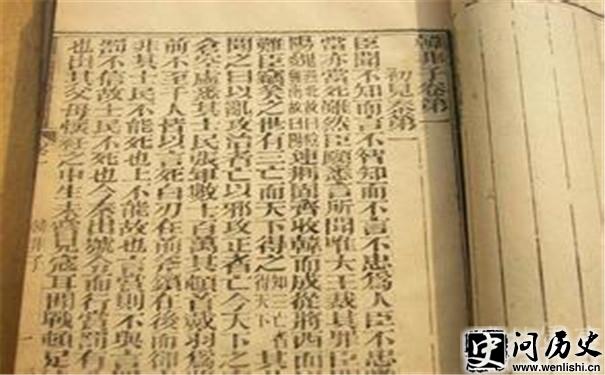 韓非子卷第一
初見秦第一
臣聞不知而言不智知而不言不忠爲人臣不忠
當亦當死雖然臣願悉言所聞唯大王裁其罪臣聞
陽魏燕北故曰陰魏南故曰陽連荆固齊收韓而成從將西面
難臣竊笑之世有三亡而天下得之知三亡者得天下其
聞之曰以亂攻治者亡以邪攻正者亡今天下之
倉空虛悉其士民張軍數十百萬其頓首戴羽爲
前不至千人皆以言死白刃在前斧鑕在後而
非其士民不能死也上不能故也言賞則不與言
罰不信故士民不死也今秦出號令而行賞罰有
也出其父母懷衽之中生未嘗見寇耳聞戰頓足
韓非子
一
史 问历史
www.wenlishi.cn